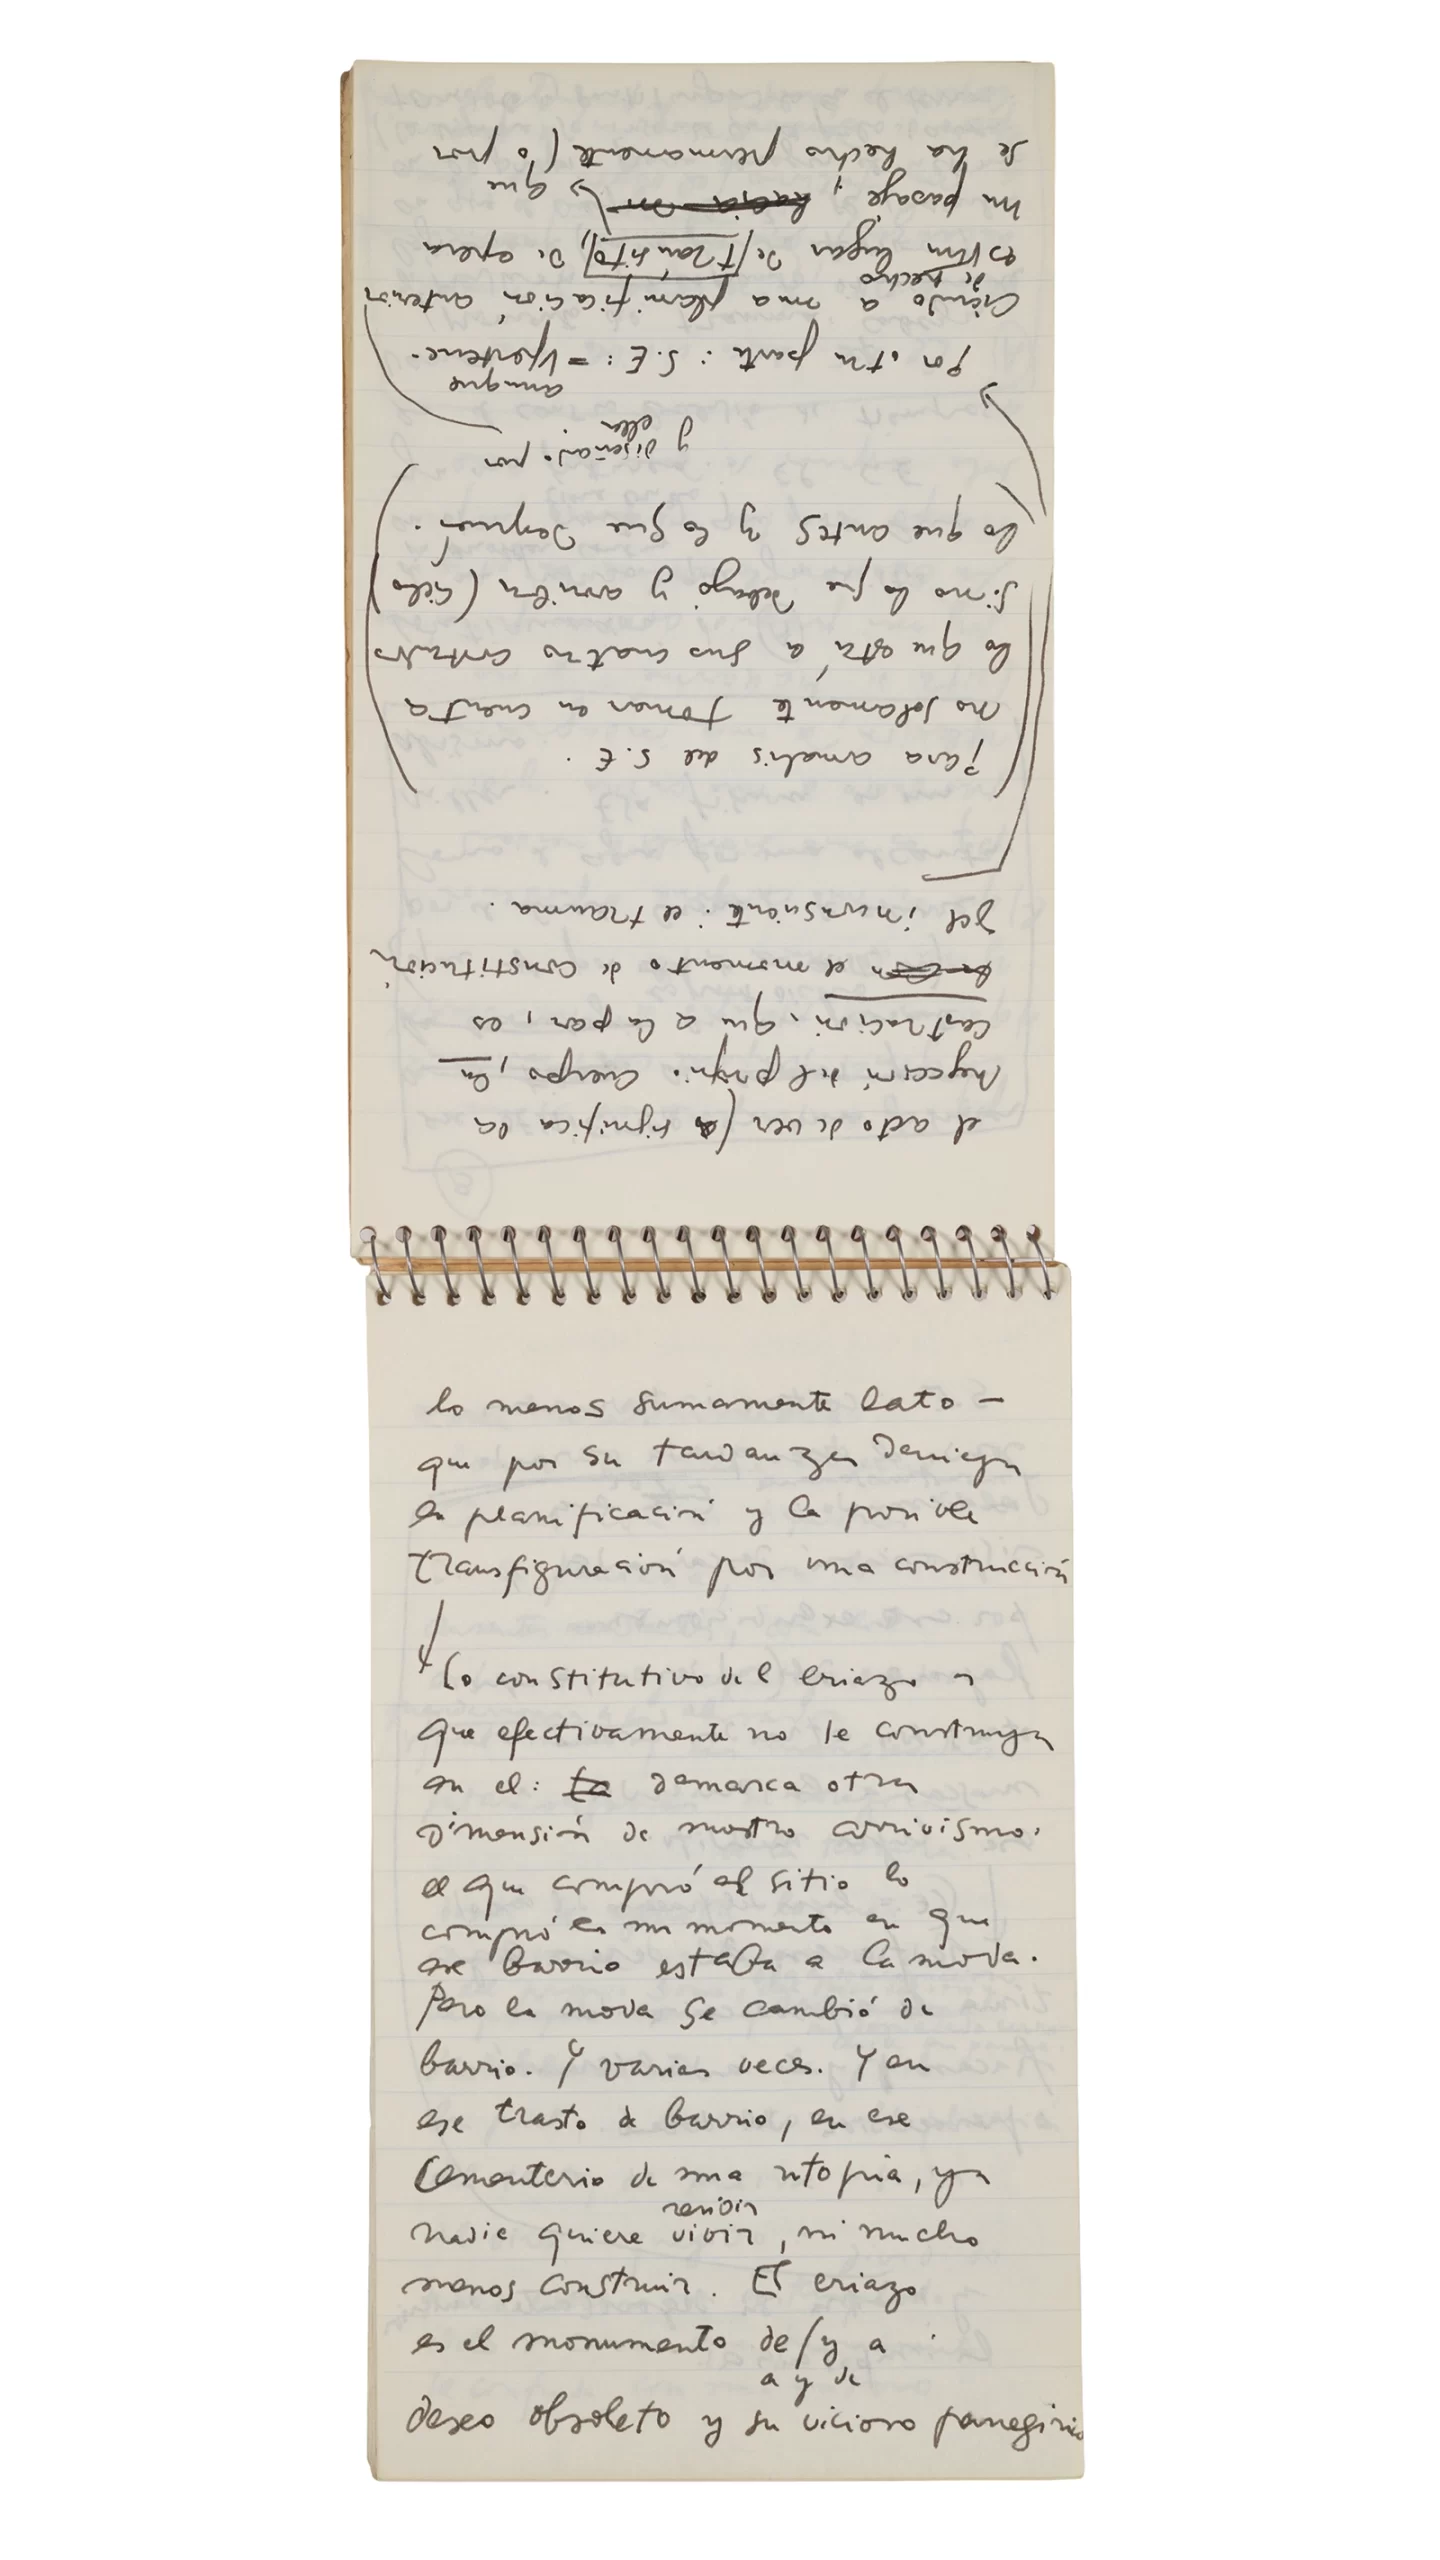 el acto de ver / significa la
negación del propio cuerpo, la
castración, que a la par, es
el momento de constitución
del inconsciente: el trauma.
Para analisis del S.E.
no solamente tomar en cuenta
lo que está a sus cuatro costados
sino lo que debajo y arriba (cielo)
lo que antes y lo que después.
y diseñado por
ella
aunque
Por otra parte: S.E: = pertene-
ciendo a una planificación anterior
de hecho
es un lugar de /tránsito/, de espera
un pasaje, hacia un que
se ha hecho permanente (o por
lo menos sumamente lato —
que por su tardanza deniega
la planificación y la posible
transfiguración por una construcción
Lo constitutivo del eriazo es
que efectivamente no se construya
en el: La demarca otra
dimensión de nuestro arrivismo.
el que compró el sitio lo
compró en un momento en que
ese barrio estaba a la moda.
Pero la moda se cambió de
barrio. Y varias veces. Y en
ese trasto de barrio, en ese
Cementerio de una utopia, ya
nadie quiere vivir, ni mucho
menos construir. El eriazo
es el monumento de/y a
a y de
deseo obsoleto y su vicioso panegirico